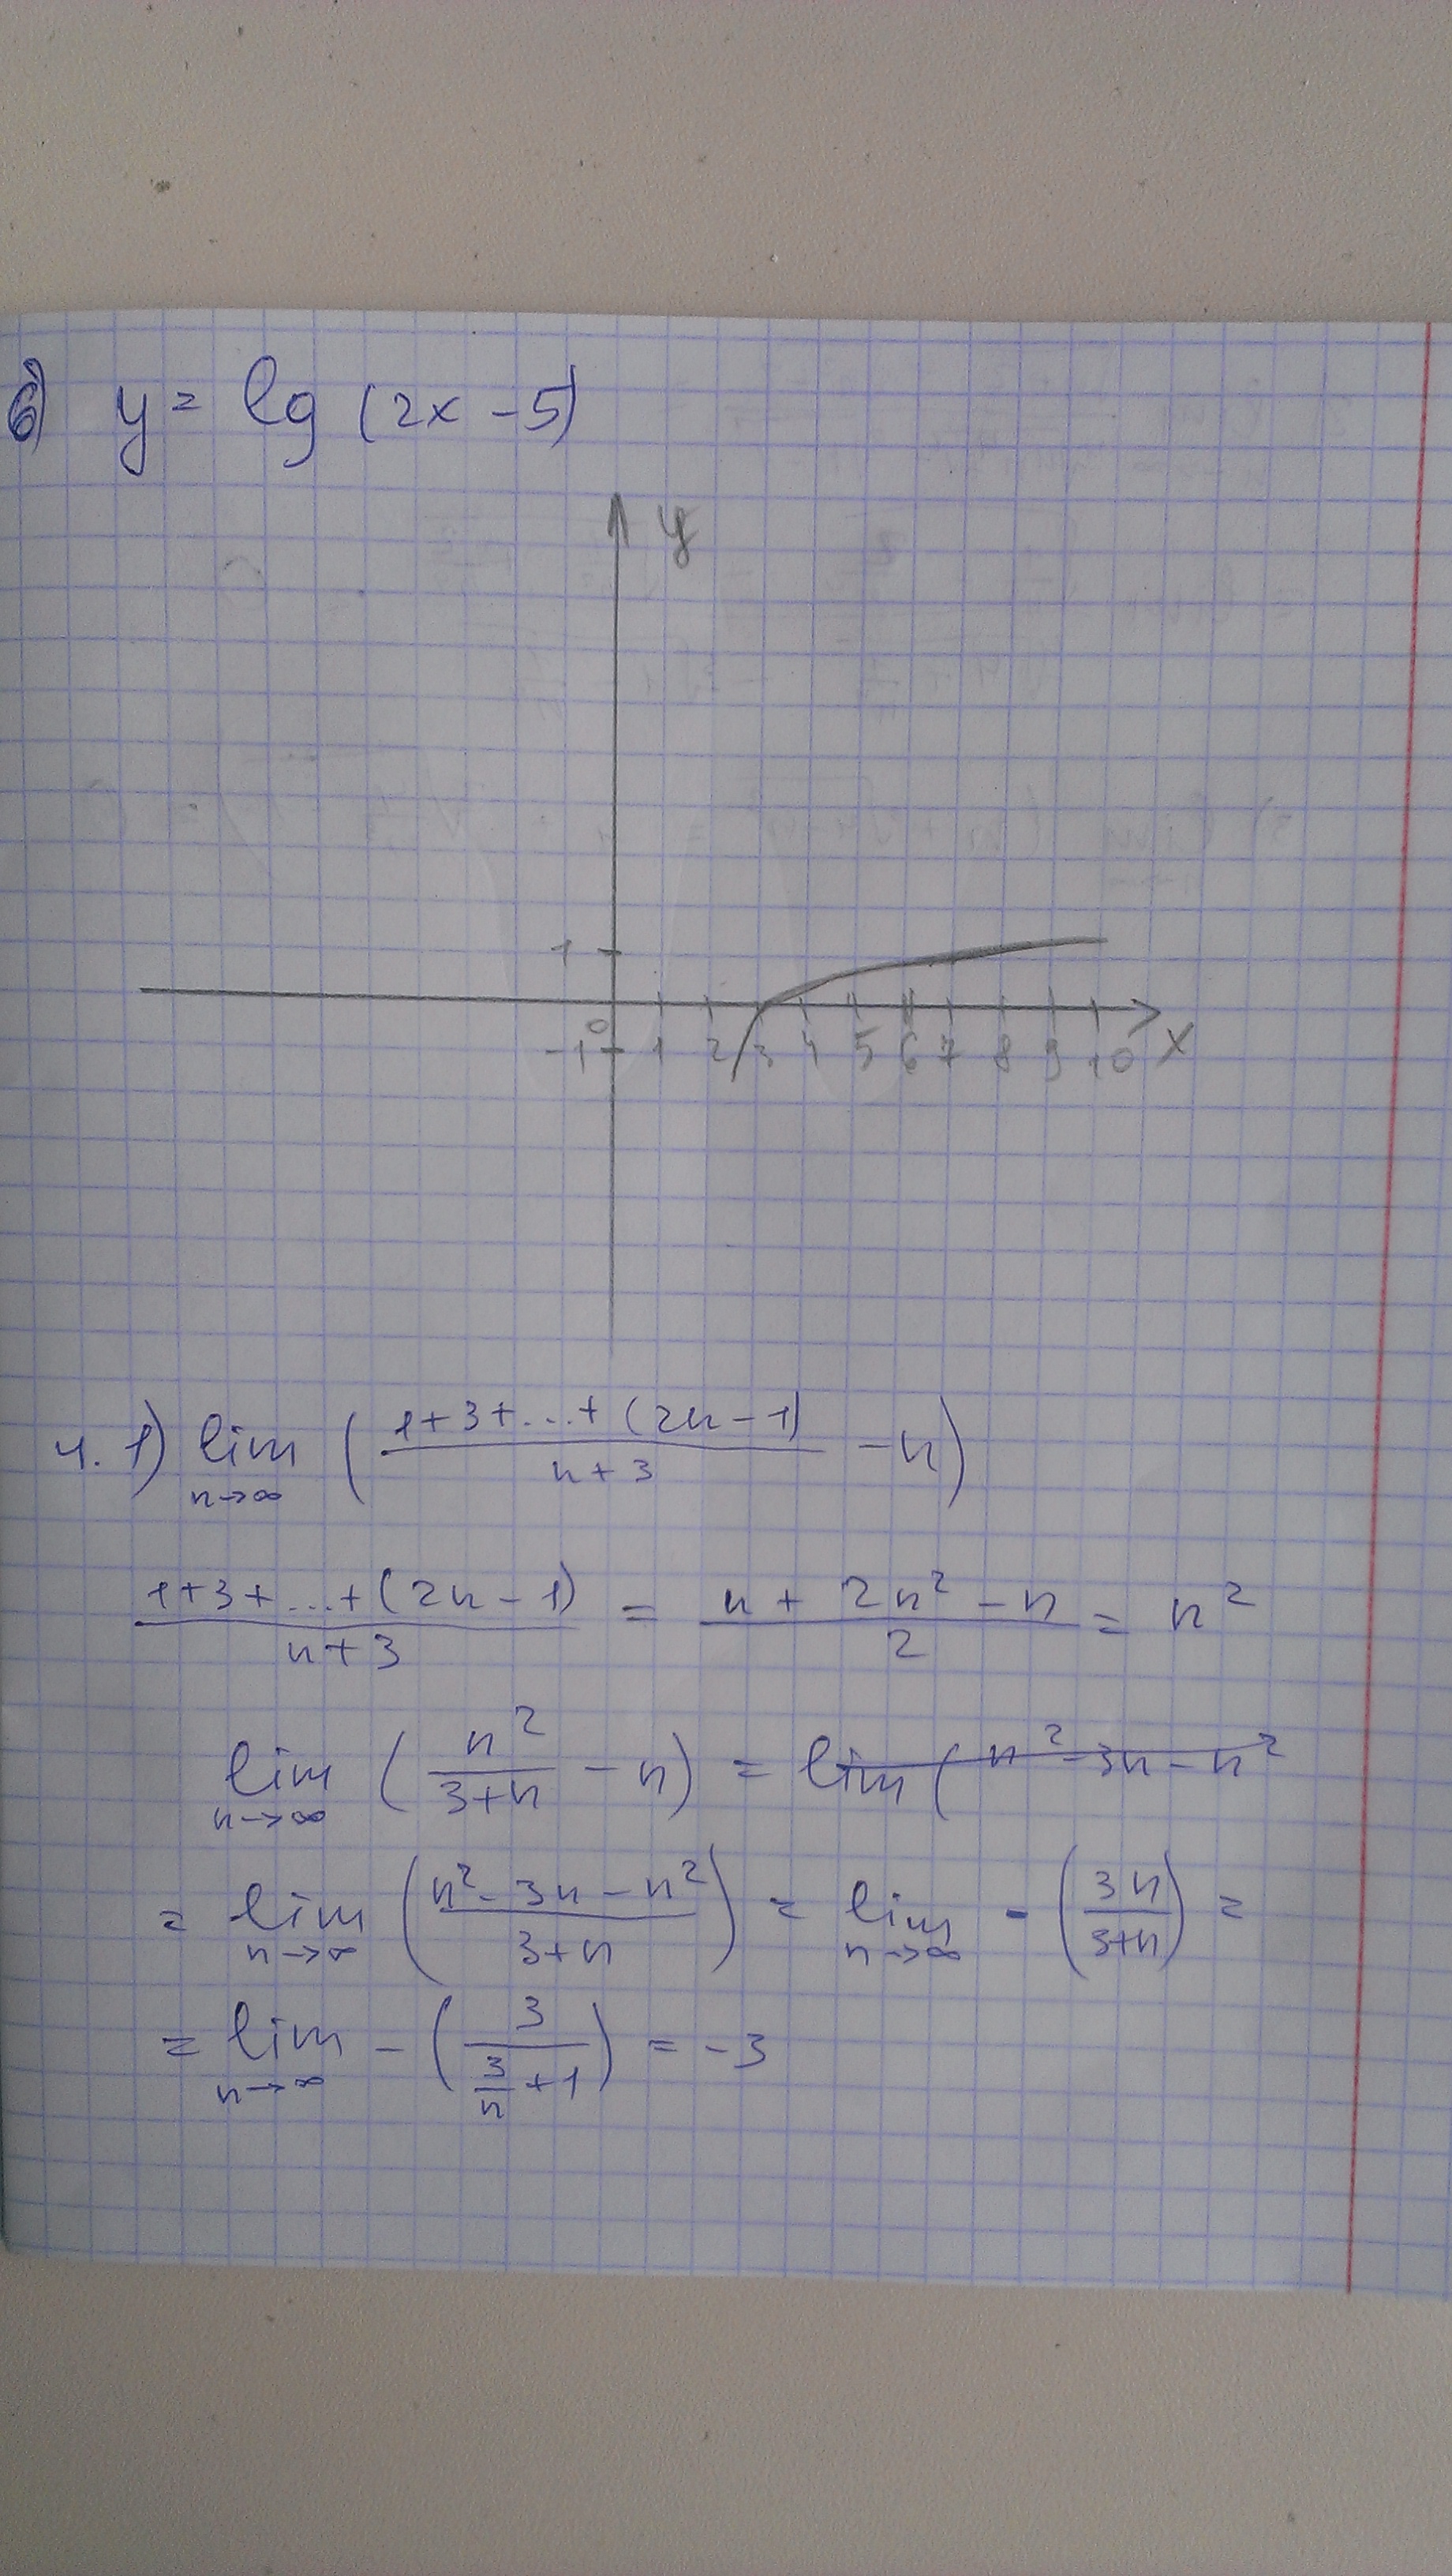 б) y = lg (2x - 5)
y
1
0
-1 1 2 3 4 5 6 7 8 9 10 x
4. 1) lim n→∞ ( (1+3+...+(2n-1))/(n+3) - n )
(1+3+...+(2n-1))/(n+3) = (n + 2n² - n)/2 = n²
lim n→∞ ( n²/(3+n) - n ) = lim ( n² - 3n - n²
= lim n→∞ ( (n² - 3n - n²)/(3+n) ) = lim n→∞ - ( 3n/(3+n) ) =
= lim n→∞ - ( 3/(3/n + 1) ) = -3